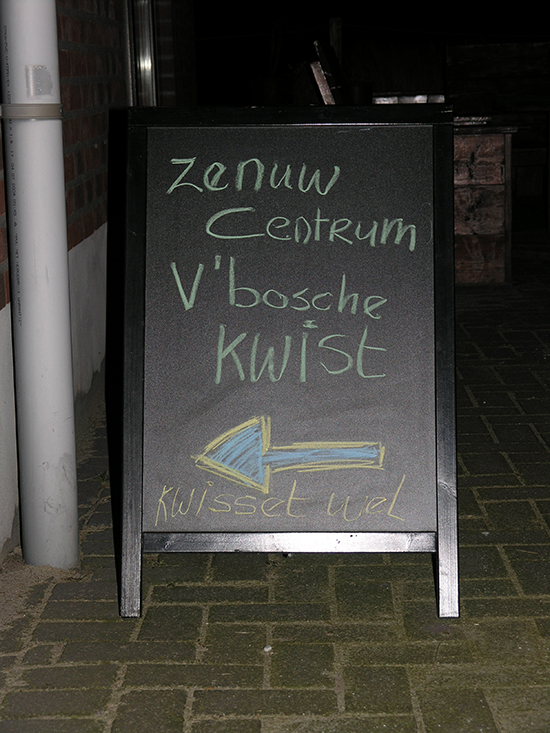 zenuw
Centrum
V'bosche
KWiSt
KWisset wel